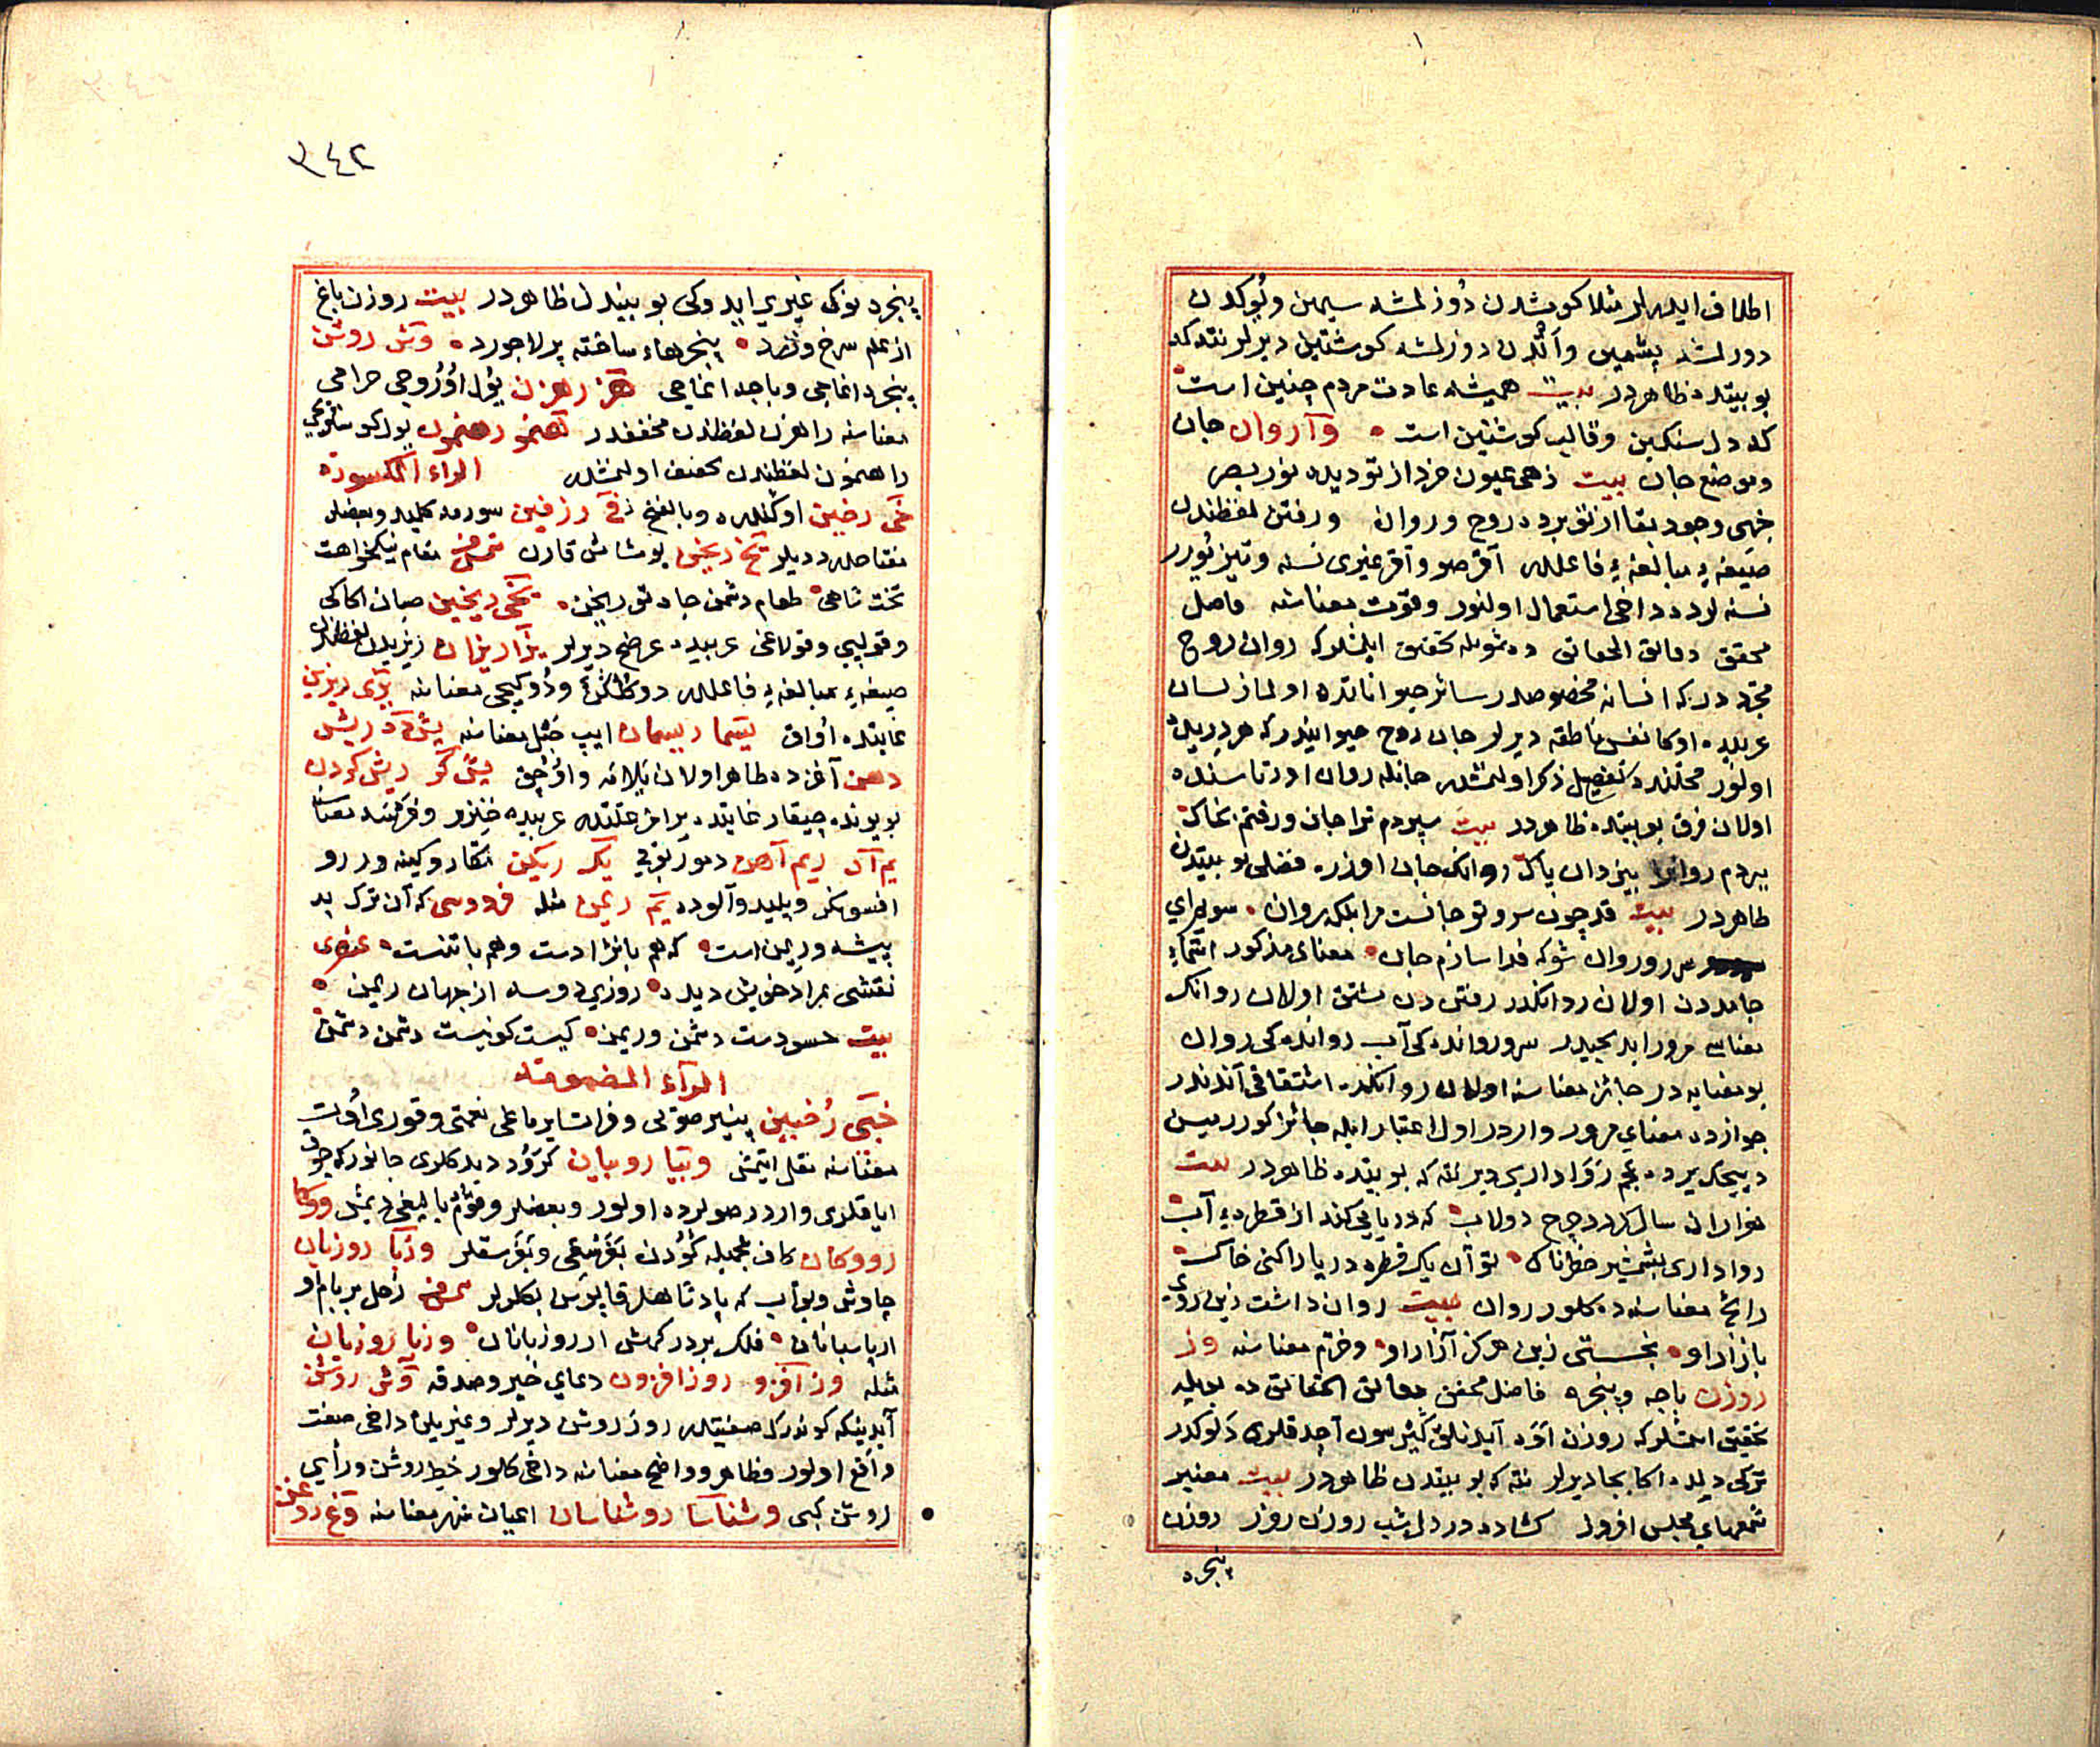 اطلاق ایله‌لر مثلا کومشدن دُوزلمشه سیمین و یُوکدن
دورلمشه پشمین و اتدن دوزلمشه کوشتین دیرلر نته که
بو بیتده ظاهردر بیت همیشه عادت مردم چنین است
که دل سنکین و قالب کوشتین است وآ روان جان
وموضع جان بیت زهی عیون خرد از تو دیده نور بصر
خهی وجود بقا از تو برده روح و روان ورفتن لفظندن
صیغهٔ مبالغهٔ فاعلله آقرصو و آقر غیری نسنه و تیز یُورر
نسنه لرده داخی استعمال اولنور وقوت معناسنه فاضل
محقق دقائق الحقائق ده شویله تحقیق ایلمشلرکه روان روح
مجرددرکه انسانه مخصوصدر سائر حیواناتده اولماز لسان
عربیده اوکا نفس ناطقه دیرلر جان روح حیوانیدرکه هر دیریلده
اولنور محلنده تفصیل ذکر اولنمشله جانله روان اورتاسنده
اولان فرق بو بیتده ظاهردر بیت سپردم ترا جان ورفتم بخاک
ببردم روانرا بیزدان پاک روانک جان اوزره فضلی بو بیتدن
ظاهردر بیت قد چون سرو تو جانست مرا بلکه روان سوبرای
سرو روان شو که فدا سازم جان معنای مذکور
جامددن اولان روانکدر رفتن دن مشتق اولان روانک
معناسی مرور ایدیجیدر سرو روانده کی آب روانده کی روان
بو معنایه در جائز معناسنه اولان روانکده اشتقاقی آندندر
جوازده معنای مرور واردر اول اعتبار ایله جائز کوررمیسن
دییجک یرده عجم رَوَا داری دیر نته که بو بیتده ظاهردر بیت
هزاران سال کردد چرخ دولاب که دریایی کند از قطرهٔ آب
روا داری بشمشیر خطرناک تو آن یک قطره دریا را کنی خاک
رائج معناسنه ده کلور روان بیت روان داشت زین روی
بازار او بخستی زین هرکز آزار او وخرّم معناسنه وز
روزن باجه وپنجره فاضل محقق دقائق الحقائق ده بویله
تحقیق ایتمشلرکه روزن اوَه آیدنلق کیرسون آچدقلری دلوکدر
ترکی دیلده اکا بجا دیرلر نته که بو بیتدن ظاهردر بیت معنبر
شمعهای مجلس افروز کشاده در دل شب روزن روز روزن
پنجره
٣٤٢
پنجره‌نوک غیری ایدوکی بو بیتدن ظاهردر بیت روزن باغ
از علم سرخ وزرد پنجرهاء ساخته پر لاجورد وش روشن
پنجره اغاجی وباجه اغاجی هز رهزن یُول اُوُرُوجی حرامی
معناسنه راهزن لفظندن مخففدر هنمو رهنمون یول کوستریجی
راهنمون لفظندن مخفف اولنمشله الراء المکسورة
خی رخین اوکنلره وبالفتح زفی رزفین سورمه کلید وبعضلر
مفتاحله ددیلر تخ ریختن یومشاتمق قارن مقام نیکخواهت
تخت شاهی طعام دشمن جاه تو ریخن نخی ریخین صبان
وقولپی وقولاغی عربیده عرضح دیرلر یزا ریزان ریزیدن لفظندن
صیغهٔ مبالغهٔ فاعلله دوکُلکن ودُوکیجی معناسنه یزی ریزین
غایتده اُوَاق یسما ریسمان ایپ حَبْل معناسنه یش د ریش
دهن آغزده ظاهر اولان یَارَه واوُچُق یش کر ریش کردن
بو یونده چیقار غایتده یرامز علتدر عربیده خنزیر و معناسنه
یم آه ریم آهن دمور بوقی یکه ریکن مکار وکینه ور رو
افسونکر وپلید وآلوده یم ریمن مثله فردوسی که آن ترک بد
پیشه وریمن است که هم با نژادست وهم با تنست عنصری
نقشی بمراد خویش دیده روزی دوسه از جهان ریمن
بیت حسودست دشمن وریمن کیست کو نیست دشمن دشمن
الرآء المضمومة
خبی رُخبین پنیر صوتی وفرات یرماغی نعمتی وقوری اُوت
معناسنه نقل ایتمشی وبیا روبیان کرَوُد دیدکلری جانورکه چوق
ایاقلری واردر صولرده اولور وبعضلر وقوم بالیغی دیمش ووکا
رووکان کاف عجمیله کَوُدن بَغَرتیغی وبَغَرسقلر وزبا روزبان
چاوش وبوّاب که پادشاهلر قاپوسن بکلرلر زحل بر بام او
از پاسبانان فلک بر درکهش از روزبانان وزبا روزبان
مثله وزافزو روزافزون دعای خیر وصدقه وش روشن
آیدینکه کوندزک صفتیله روز روشن دیرلر وغیریله داخی صفت
واقع اولور وظاهر وواضح معناسنه داخی کلور خط روشن ورأی
روشن کبی وشناسا روشناسان اعیان شهر معناسنه وغ روغن